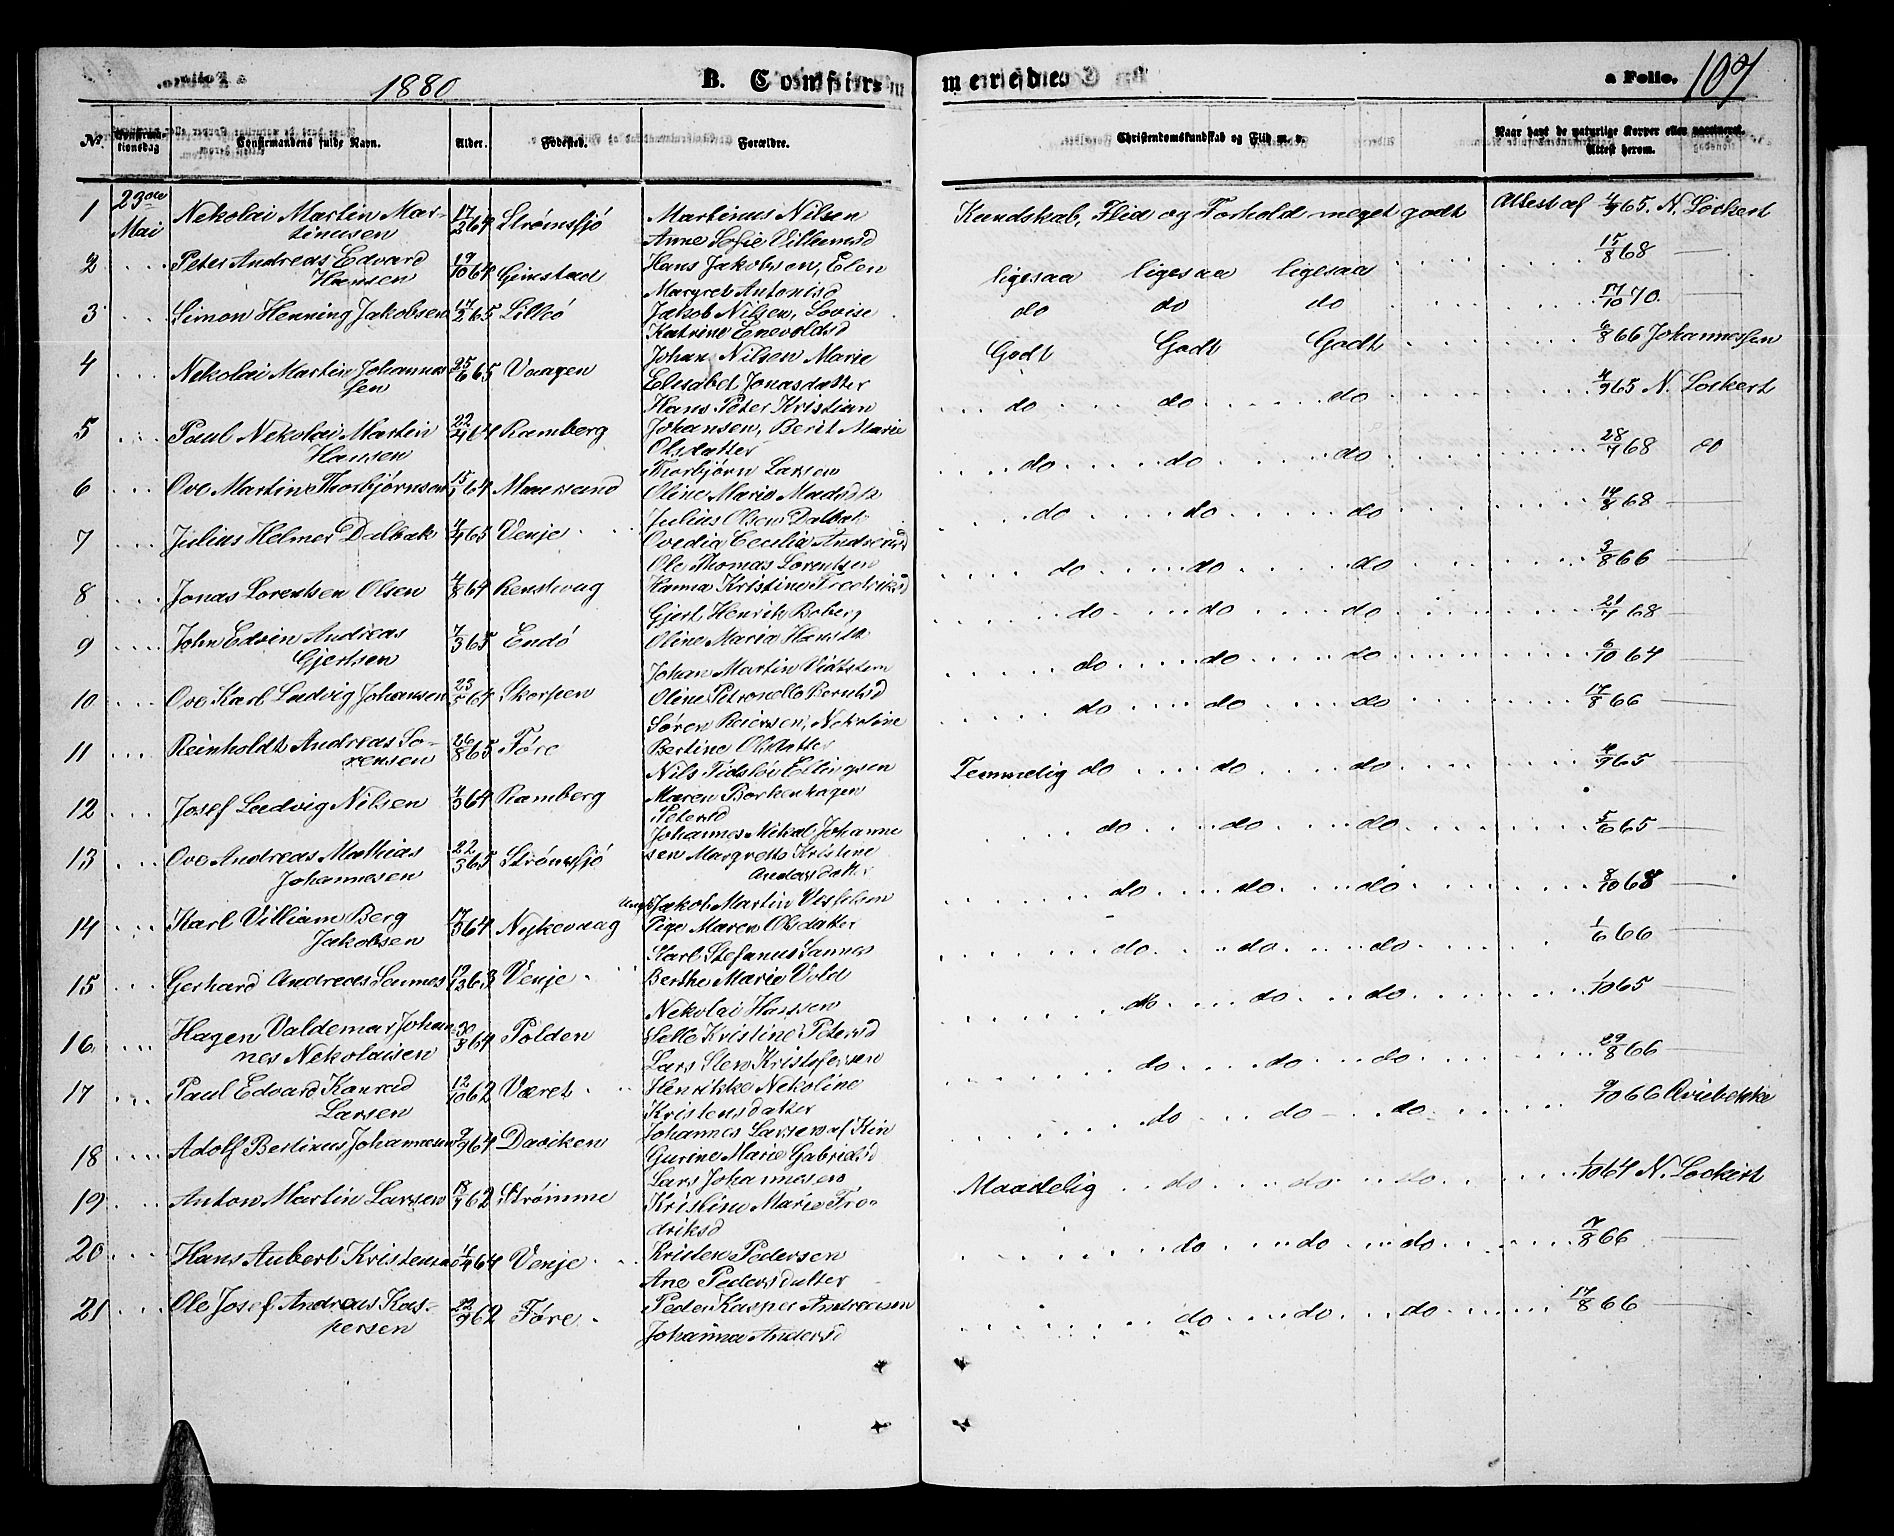 1880 B. Confir- merede. a Folio. 107
No. Confirma-tionsdag Confirmandens fulde Navn. Alder. Fødested. Forældre. Christendomskundskab og Flid m. v. Naar havt de naturlige Kopper eller vaccineret. Attest herom.
1 23de Mai Nekolai Martin Mar- 17/2 64 Strømsfjö Martinus Nilsen Kundskab, Flid og Forhold meget godt Attest af 4/9 65. N. Lockert
tinusen Anne Sofie Villumsd
2 Peter Andreas Edvard 19/10 64 Gimstad Hans Jakobsen, Elen ligesaa ligesaa ligesaa 15/8 68
Hansen Margret Antonisd
3 Simon Henning Jakobsen 17/2 65 Lillö Jakob Nilsen, Lovise do do do 17/10 70
Katrine Enevoldsd
4 Nekolai Martin Johannes 25/6 65 Vaagen Johan Nilsen Marie Godt Godt Godt 6/8 66 Johannessen
sen Elisabet Jonasdatter
5 Paul Nekolai Martin 22/4 64 Ramberg Hans Peter Kristian do do do 4/9 65 N. Lockert
Hansen Johansen, Berit Marie
Olsdatter
6 Ove Martin Thorbjørnsen 15/1 64 Maursand Thorbjörn Larsen do do do 28/7 68 do
Oline Marie Madsdtr
7 Julius Helmer Dalbak 4/4 65 Venje Julius Olsen Dalbak do do do 14/8 68
Ovedia Cecilia Andreasd
8 Jonas Lorentsen Olsen 4/8 64 Renstvag Ole Thomas Lorentsen do do do 3/8 66
Hanna Kristine Fredriksd
9 John Edvin Andreas 7/3 65 Endö Gjert Henrik Boberg do do do 21/7 68
Gjertsen Oline Maria Hansdtr
10 Ove Karl Ludvig Johansen 23/5 64 Skorpen Johan Martin do do do 6/10 64
Oline Petronelle Berntsd
11 Reinholdt Andreas So- 26/8 65 Före Sören Reiersen, Nekoline do do do 17/8 66
rensen Bertine Olsdatter
12 Josef Ludvig Nilsen 4/3 64 Ramberg Nils Tidslöv Ellingsen Temmelig do do do 4/9 65
Maren Borkenhagen
Petersd
13 Ove Andreas Mathias 22/3 65 Strømsfjö Johannes Mikal Johanne do do do 5/6 65
Johannesen sen Margrette Kristine
Andersdatter
14 Karl Villiam Berg 17/3 64 Nykevaag Ungk. Jakob Martin do do do 8/10 68
Jakobsen Pige Maren Olsdatter
15 Gerhard Andreas Sannes 19/12 63 Venje Karl Stefanus Sannes do do do 1/6 66
Berthe Marie Vold
16 Hagen Valdemar Johan 30/3 64 Polden Nekolai Hansen do do do 1/10 65
nes Nekolaisen Selle Kristine Petersd
17 Paul Edvard Konrad 12/10 62 Været Lars Sten Kristofersen do do do 29/8 66
Larsen Henrikke Nekoline
Kristensdatter
18 Adolf Bertinus Johannesen 9/9 64 Daviken Johannes Larsen af Kin do do do 9/10 66
Gurine Marie Gabrielsd
19 Anton Martin Larsen 18/7 62 Strömme Lars Johannesen Maadelig do do do 1/10 64 N. Lockert
Kristine Marie Fre-
driksd
20 Hans Aubert Kristensen 1/4 64 Venje Kristen Pedersen do do do 7/8 66
Ane Pedersdatter
21 Ole Josef Andreas Kas- 22/9 62 Före Peder Kasper Andreasen do do do 17/8 66
persen Johanna Andersd